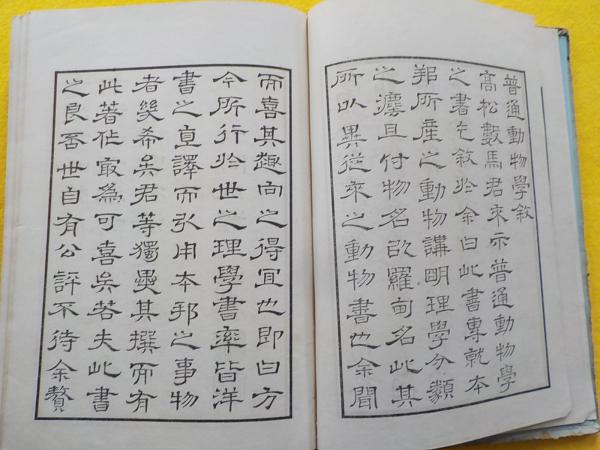 普通動物學敘
高松數馬君來示普通動物學
之書乞敘於余曰此書專就本
邦所產之動物講明理學分類
之灋且付物名以羅甸名此其
所以異從來之動物書也余聞
而喜其趣向之得宜也即曰方
今所行於世之理學書率皆洋
書之直譯而引用本邦之事物
者幾希矣君等獨憂其撰而有
此著作最為可喜矣若夫此書
之良否世自有公評不待余贅